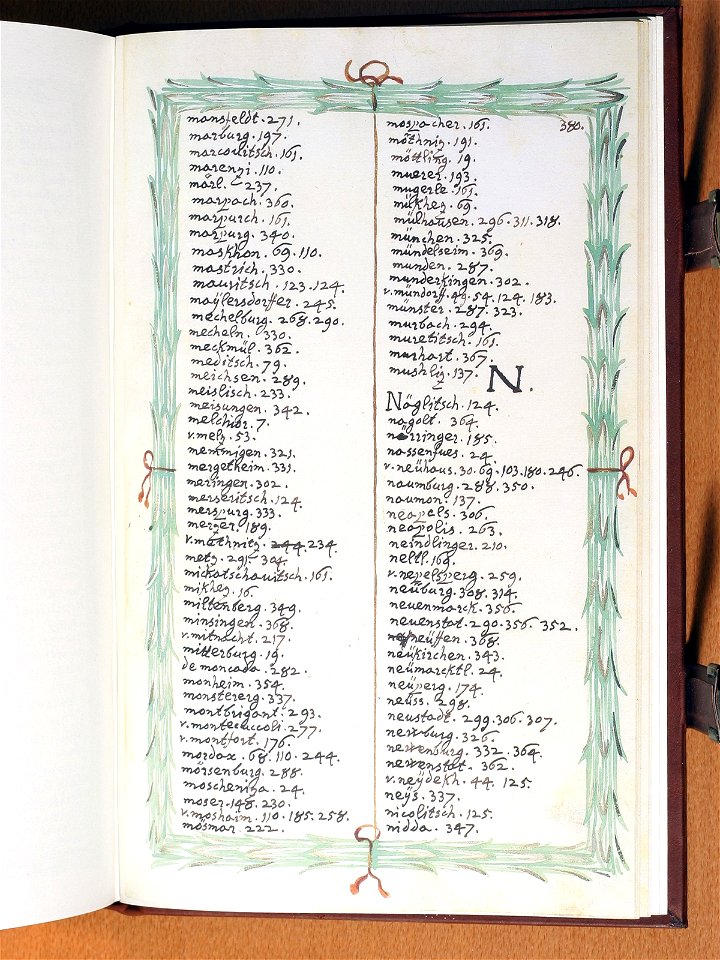 mansfeldt. 271.
marburg. 197.
marcovitsch. 161.
marenzi. 110.
märl. 237.
marpach. 360.
marpurch. 161.
marpurg. 340.
maskhon. 69. 110.
mastrich. 330.
mauritsch. 123. 124.
maÿlersdorffer. 245.
mechelburg. 268. 290.
mecheln. 330.
meckmül. 362.
meditsch. 79.
meichsen. 289.
meislisch. 233.
meisungen. 342.
melchior. 7.
v. melz. 53.
memmigen. 321.
mergetheim. 331.
meringen. 302.
merseritsch. 124.
merspurg. 333.
merzer. 189.
v. methnitz. 244. 234.
metz. 291. 304.
mickatschavitsch. 161.
mikhez. 16.
miltenberg. 349.
minsingen. 368.
v. mitnacht. 217.
mitterburg. 19.
de moncada. 282.
monheim. 354.
monstererg. 337.
montbrigant. 293.
v. montecuccoli. 277.
v. montfort. 176.
mordax. 68. 110. 244.
mörsenburg. 288.
moscheniza. 24.
moser. 148. 230.
v. moshaim. 110. 185. 258.
mosmar. 222.
380.
mospacher. 161.
möthniz. 191.
möttling. 19.
muerer. 193.
mugerle. 161.
mükhez. 69.
mülhausen. 296. 311. 318.
münchen. 325.
mündelseim. 369.
münden. 287.
munderkingen. 302.
v. mündorff. 49. 54. 124. 183.
münster. 287. 323.
murbach. 294.
muretitsch. 161.
murhart. 367.
mushliz. 137.
N.
Näglitsch. 124.
nagolt. 364.
närringer. 185.
nassenfues. 24.
v. neühaus. 30. 69. 103. 180. 246.
naumburg. 288. 350.
naumon. 137.
neapels. 306.
neapolis. 263.
neindlinger. 210.
neltl. 169.
v. nepelsperg. 259.
neüburg. 308. 314.
neuenmarck. 356.
neuenstat. 290. 356. 352.
neüffen. 368.
neükirchen. 343.
neümarcktl. 24.
neüperg. 174.
neüss. 298.
neustadt. 299. 306. 307.
newburg. 326.
newenburg. 332. 364.
newenstat. 362.
v. neÿdekh. 44. 125.
neÿs. 337.
nicolitsch. 125.
nidda. 347.